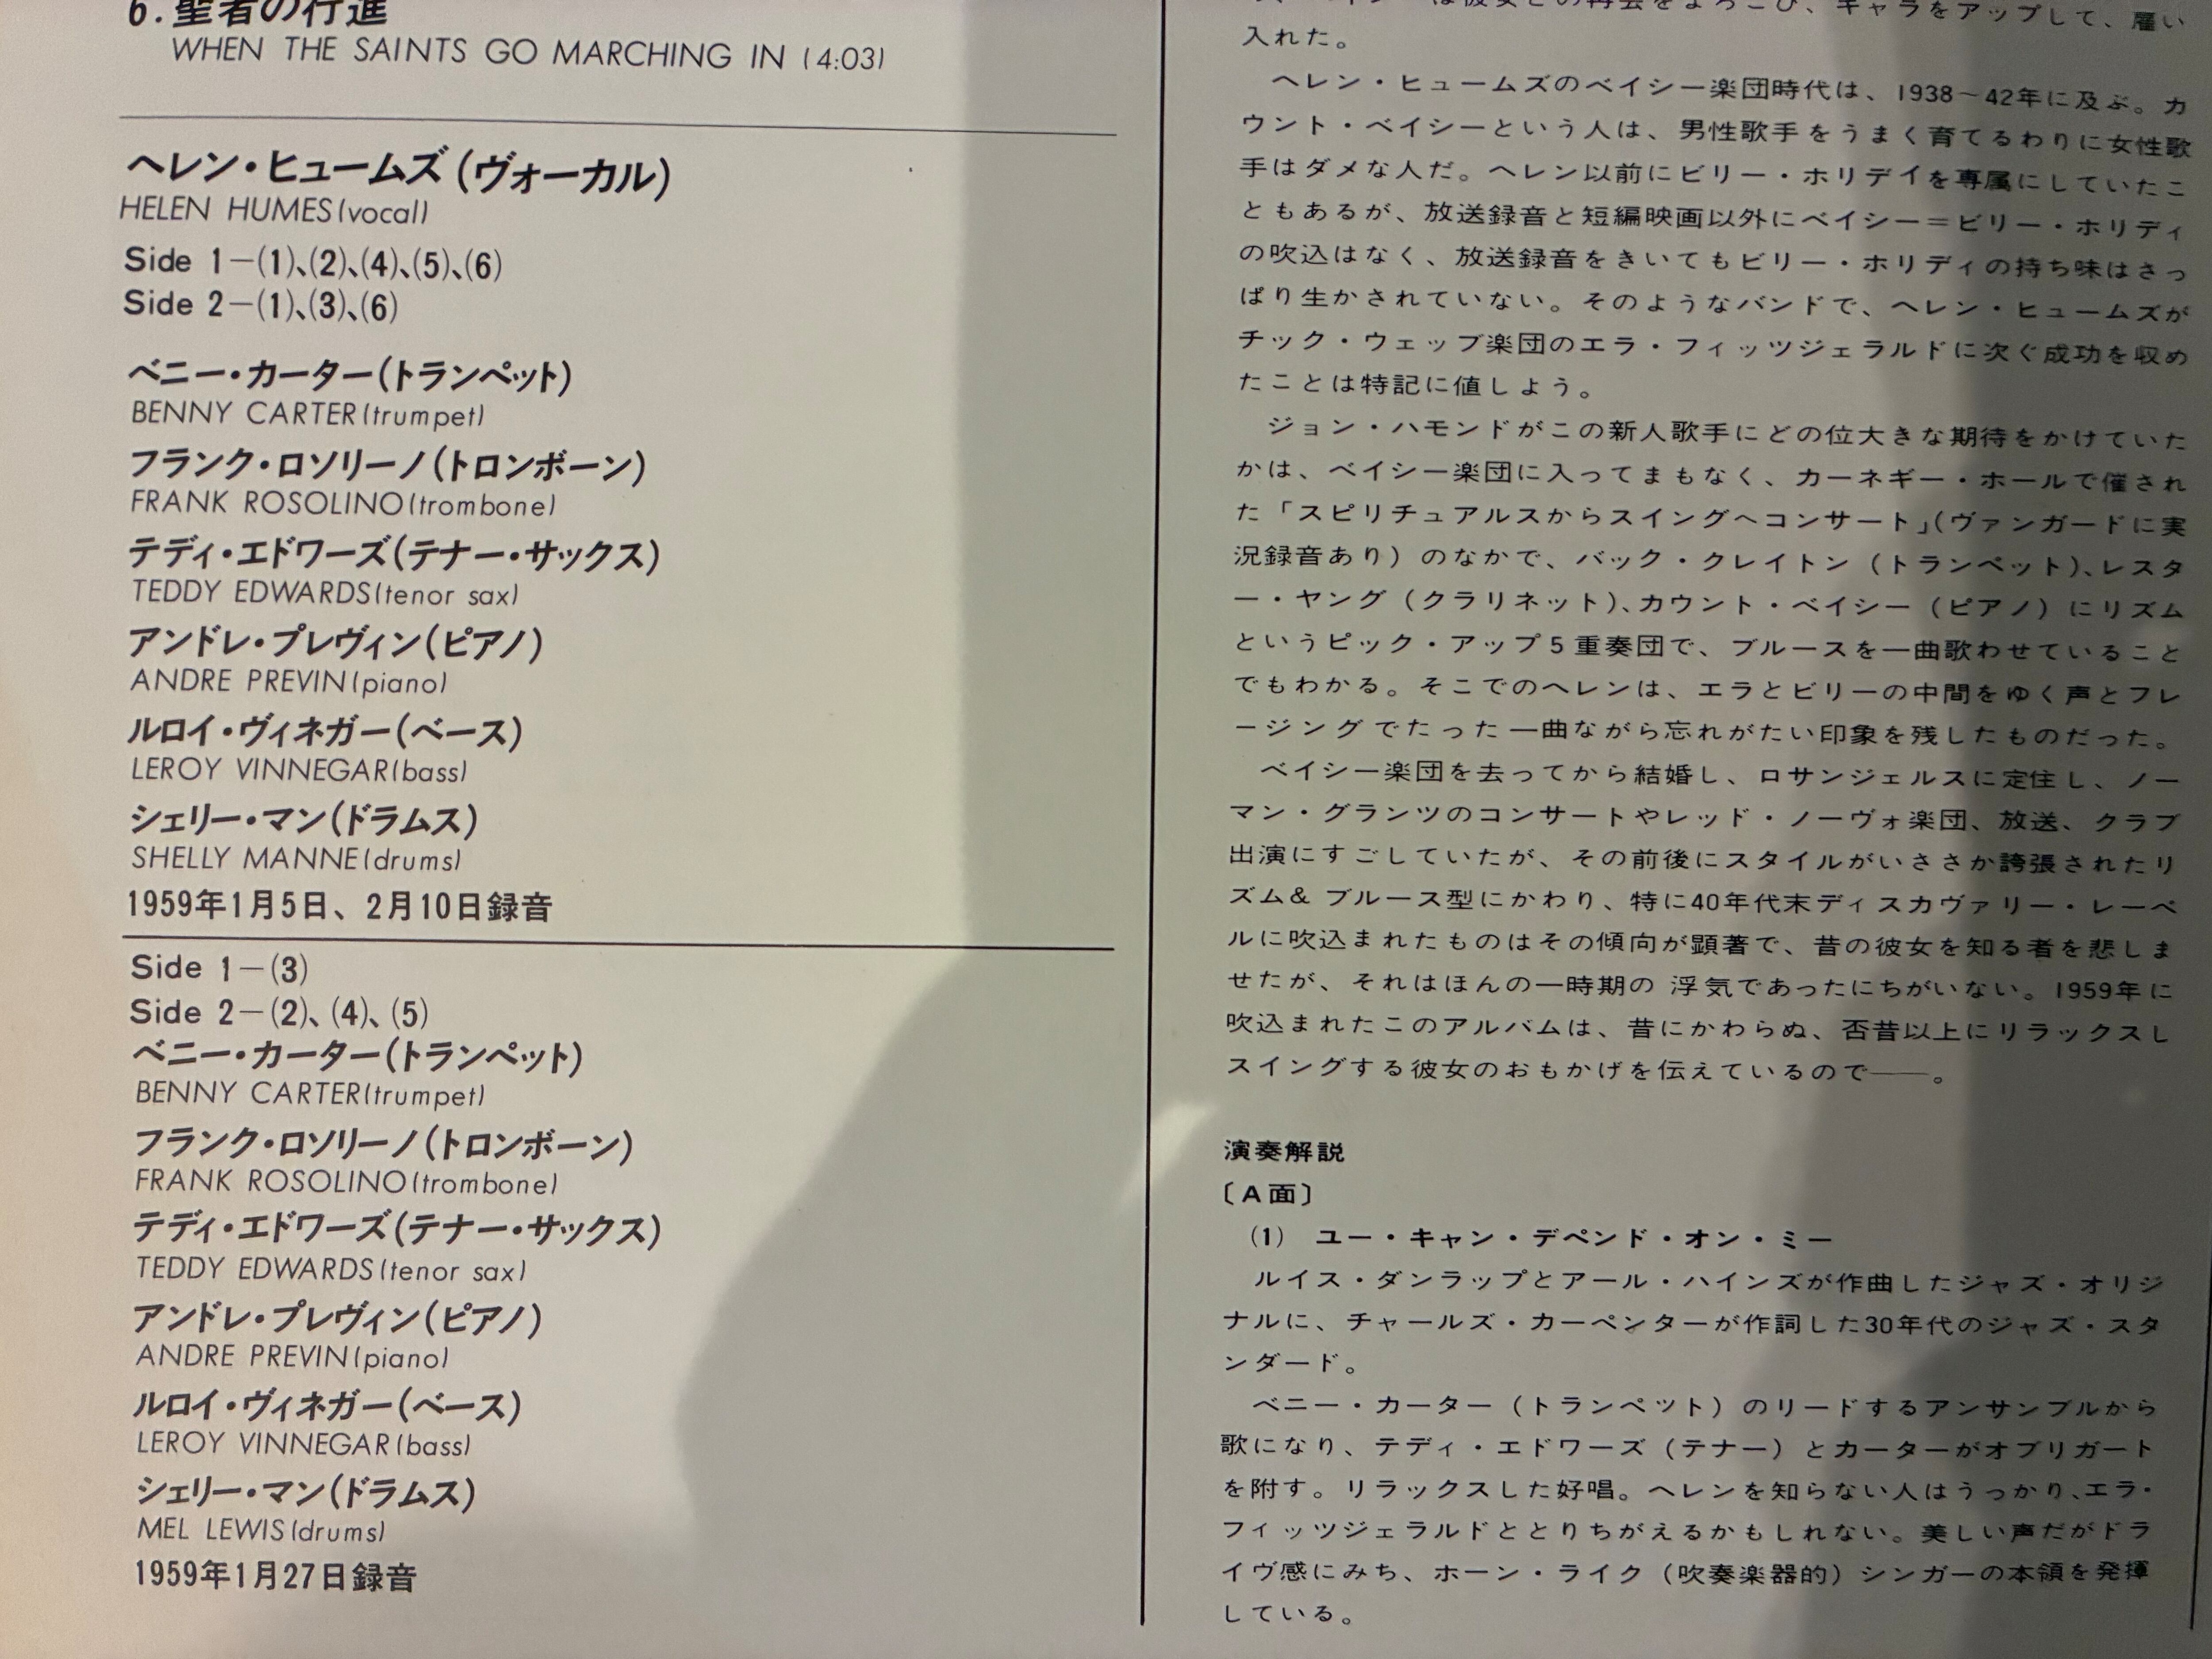 6.聖者の行進
WHEN THE SAINTS GO MARCHING IN (4:03)
ヘレン・ヒュームズ(ヴォーカル)
HELEN HUMES(vocal)
Side 1-(1)、(2)、(4)、(5)、(6)
Side 2-(1)、(3)、(6)
ベニー・カーター(トランペット)
BENNY CARTER(trumpet)
フランク・ロソリーノ(トロンボーン)
FRANK ROSOLINO(trombone)
テディ・エドワーズ(テナー・サックス)
TEDDY EDWARDS(tenor sax)
アンドレ・プレヴィン(ピアノ)
ANDRE PREVIN(piano)
ルロイ・ヴィネガー(ベース)
LEROY VINNEGAR(bass)
シェリー・マン(ドラムス)
SHELLY MANNE(drums)
1959年1月5日、2月10日録音
Side 1-(3)
Side 2-(2)、(4)、(5)
ベニー・カーター(トランペット)
BENNY CARTER(trumpet)
フランク・ロソリーノ(トロンボーン)
FRANK ROSOLINO(trombone)
テディ・エドワーズ(テナー・サックス)
TEDDY EDWARDS(tenor sax)
アンドレ・プレヴィン(ピアノ)
ANDRE PREVIN(piano)
ルロイ・ヴィネガー(ベース)
LEROY VINNEGAR(bass)
シェリー・マン(ドラムス)
MEL LEWIS(drums)
1959年1月27日録音
は彼女との再会をよろこび、ギャラをアップして、雇い
入れた。
ヘレン・ヒュームズのベイシー楽団時代は、1938〜42年に及ぶ。カ
ウント・ベイシーという人は、男性歌手をうまく育てるわりに女性歌
手はダメな人だ。ヘレン以前にビリー・ホリデイを専属にしていたこ
ともあるが、放送録音と短編映画以外にベイシー=ビリー・ホリディ
の吹込はなく、放送録音をきいてもビリー・ホリディの持ち味はさっ
ぱり生かされていない。そのようなバンドで、ヘレン・ヒュームズが
チック・ウェッブ楽団のエラ・フィッツジェラルドに次ぐ成功を収め
たことは特記に値しよう。
ジョン・ハモンドがこの新人歌手にどの位大きな期待をかけていた
かは、ベイシー楽団に入ってまもなく、カーネギー・ホールで催され
た「スピリチュアルスからスイングへコンサート」(ヴァンガードに実
況録音あり)のなかで、バック・クレイトン(トランペット)、レスタ
ー・ヤング(クラリネット)、カウント・ベイシー(ピアノ)にリズム
というピック・アップ5重奏団で、ブルースを一曲歌わせていること
でもわかる。そこでのヘレンは、エラとビリーの中間をゆく声とフレ
ージングでたった一曲ながら忘れがたい印象を残したものだった。
ベイシー楽団を去ってから結婚し、ロサンジェルスに定住し、ノー
マン・グランツのコンサートやレッド・ノーヴォ楽団、放送、クラブ
出演にすごしていたが、その前後にスタイルがいささか誇張されたリ
ズム& ブルース型にかわり、特に40年代末ディスカヴァリー・レーベ
ルに吹込まれたものはその傾向が顕著で、昔の彼女を知る者を悲しま
せたが、それはほんの一時期の 浮気であったにちがいない。1959年に
吹込まれたこのアルバムは、昔にかわらぬ、否昔以上にリラックスし
スイングする彼女のおもかげを伝えているので――。
演奏解説
〔A面〕
(1) ユー・キャン・デペンド・オン・ミー
ルイス・ダンラップとアール・ハインズが作曲したジャズ・オリジ
ナルに、チャールズ・カーペンターが作詞した30年代のジャズ・スタ
ンダード。
ベニー・カーター(トランペット)のリードするアンサンブルから
歌になり、テディ・エドワーズ(テナー)とカーターがオブリガート
を附す。リラックスした好唱。ヘレンを知らない人はうっかり、エラ・
フィッツジェラルドととりちがえるかもしれない。美しい声だがドラ
イヴ感にみち、ホーン・ライク(吹奏楽器的)シンガーの本領を発揮
している。